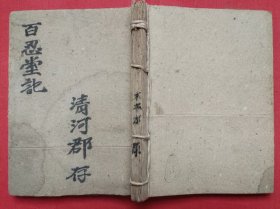 百忍堂記
清河郡存